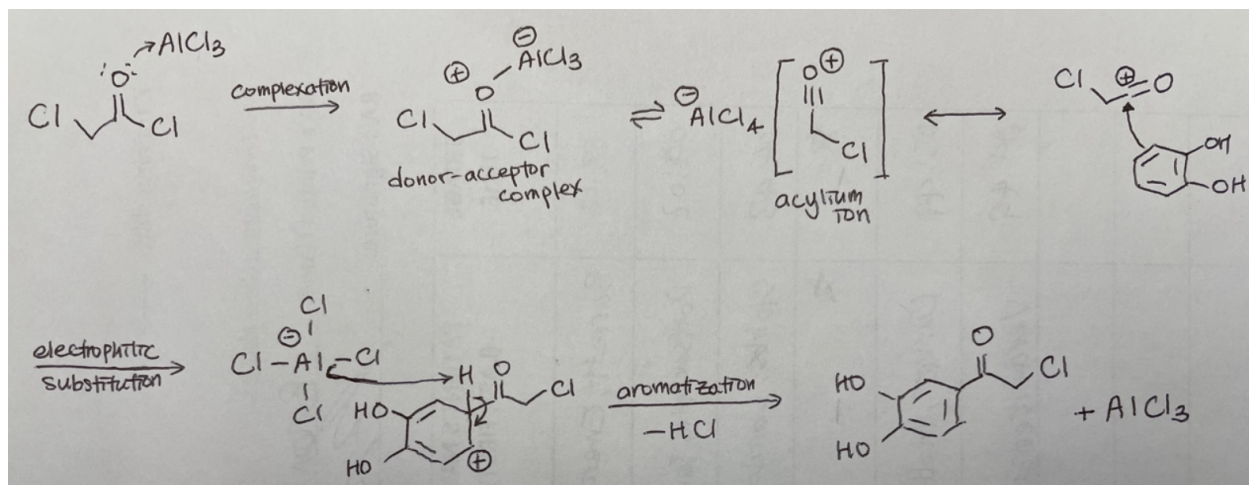 AlCl3
:O:
Cl
Cl
complexation
⊖
AlCl3
⊕
O
Cl
Cl
donor-acceptor
complex
⇌
⊖
AlCl4
O⊕
Cl
acylium
ion
↔
Cl ⊕ O
OH
OH
electrophilic
substitution
Cl
⊖
Cl-Al-Cl
Cl
H O
Cl
HO
HO
⊕
aromatization
-HCl
O
Cl
HO
HO
+ AlCl3